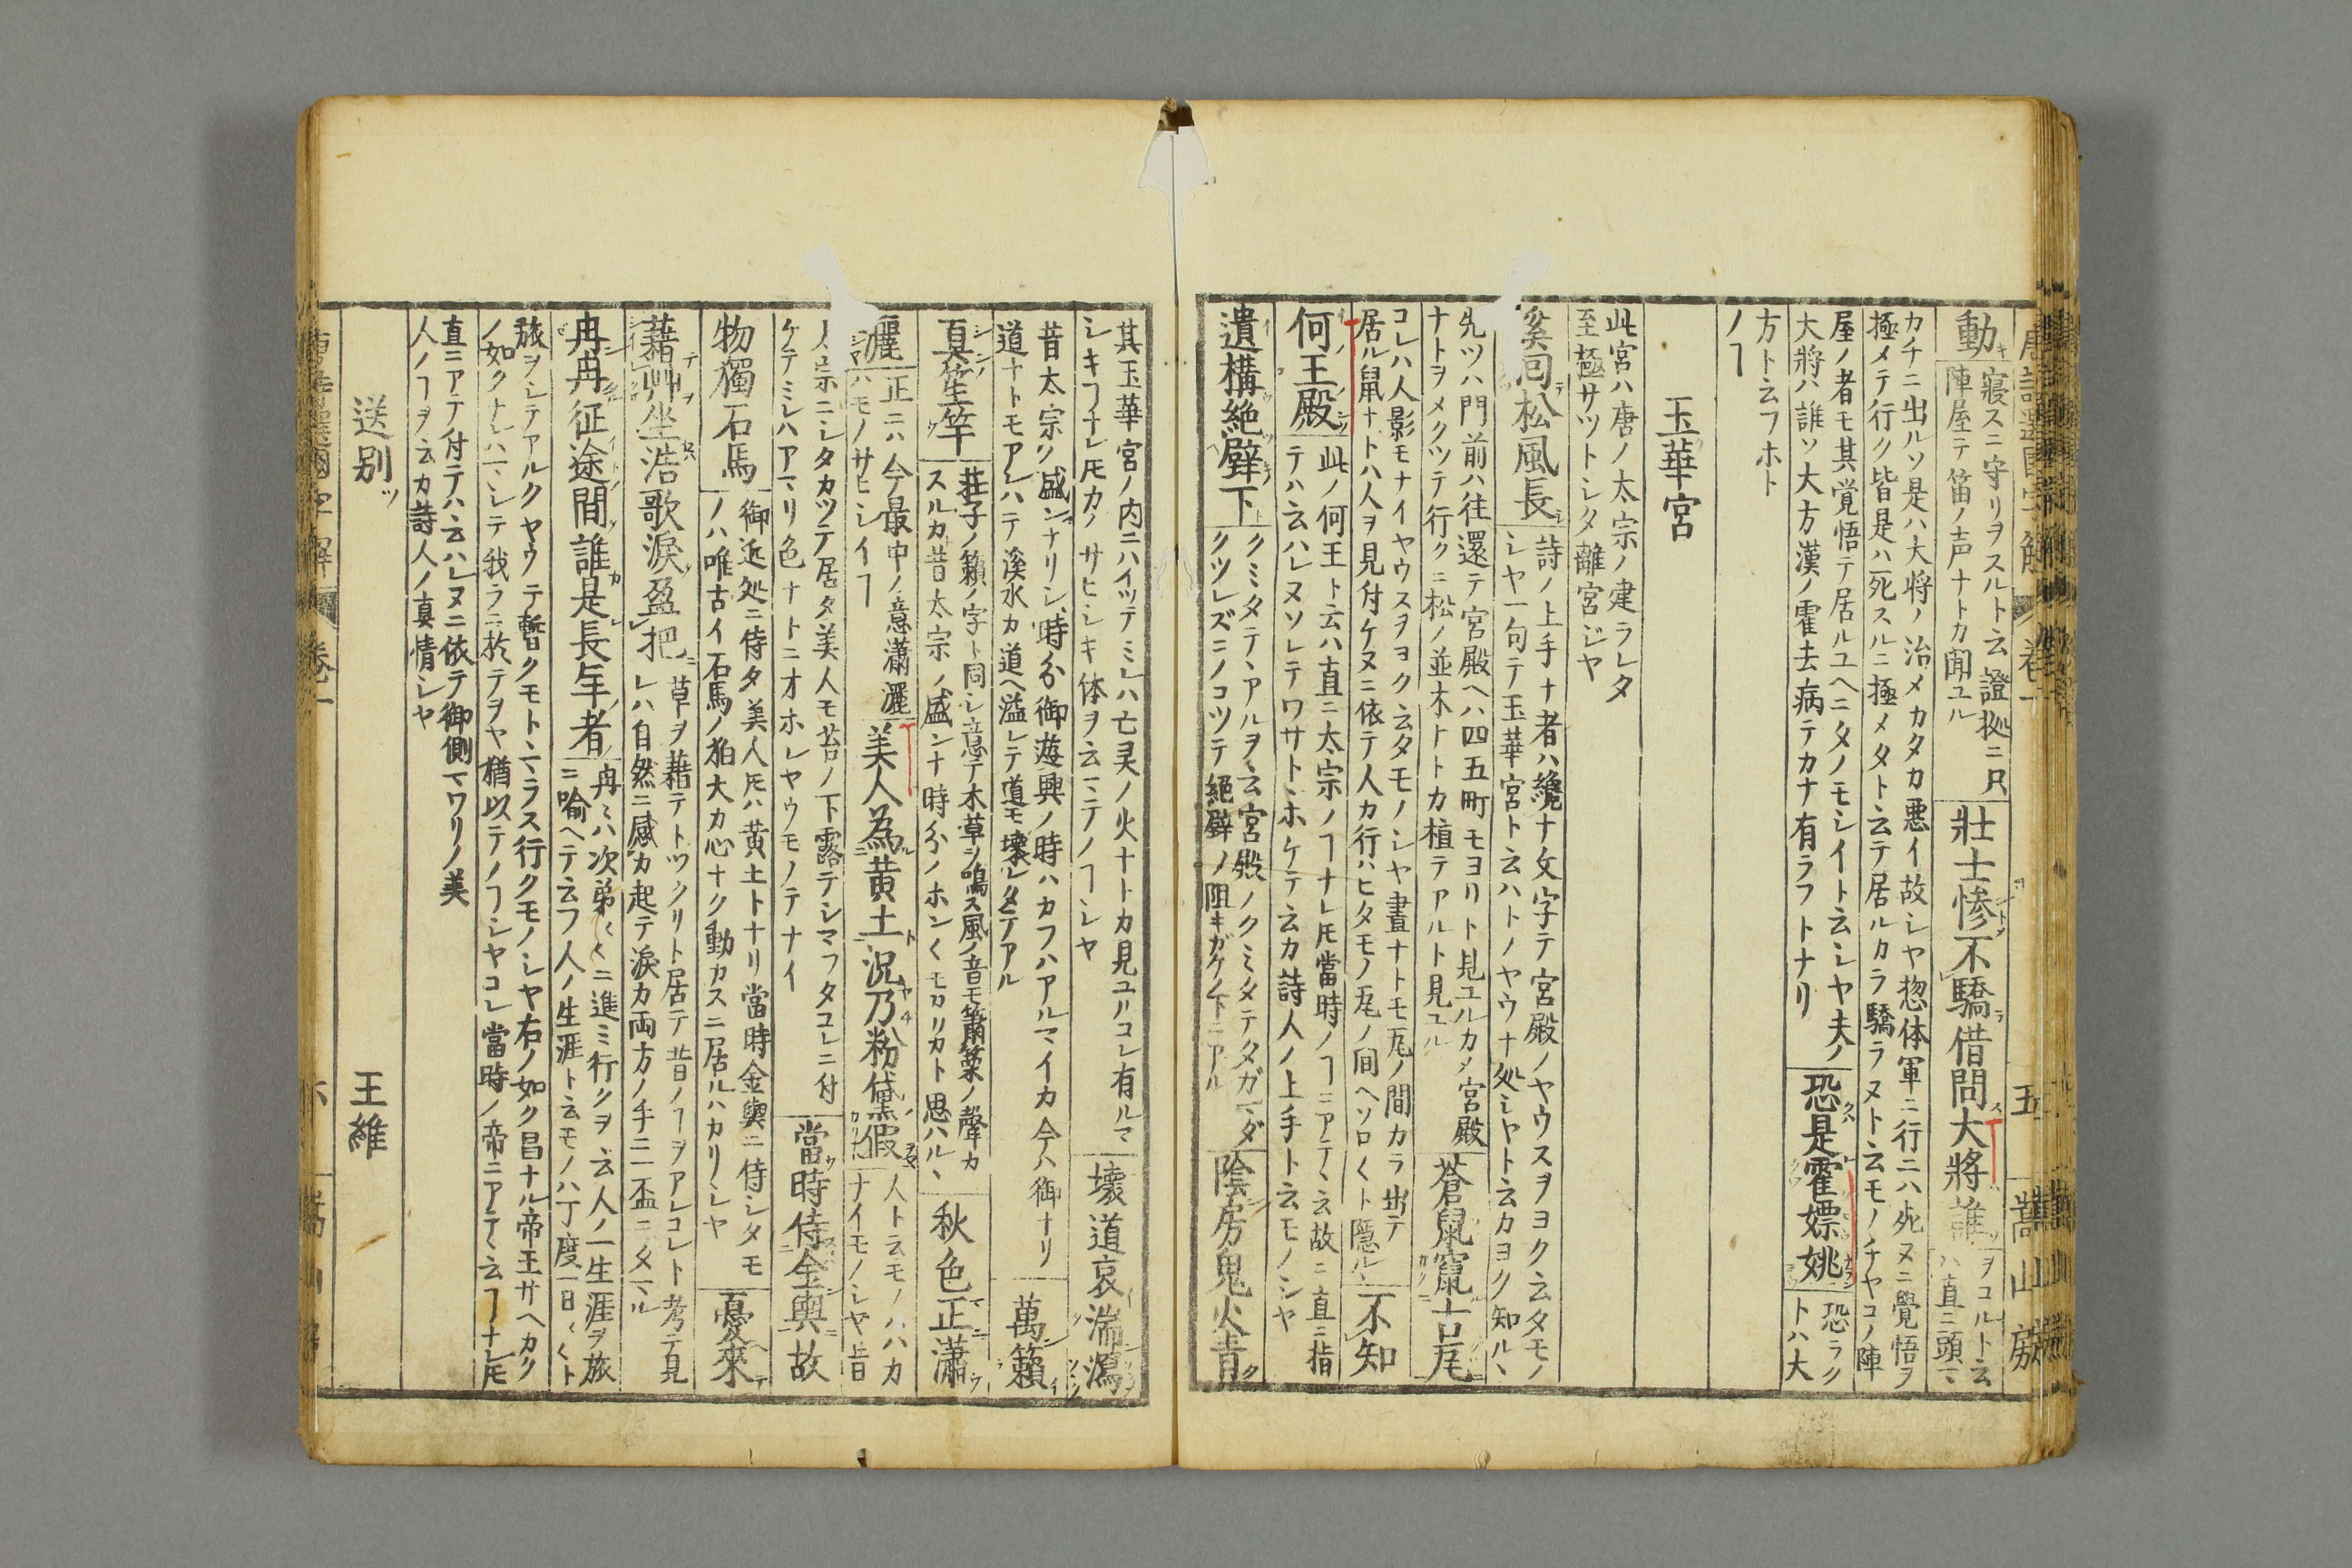 動
寢スニ守リヲスルト云證拠ニ只
陣屋テ笛ノ声ナトカ聞ユル
壯士惨不驕借問大將誰
ヲコルト云
ハ直ニ頭ニ
カチニ出ルソ是ハ大将ノ治メカタカ悪イ故シヤ惣体軍ニ行ニハ死ヌニ覺悟ヲ
極メテ行ク皆是ハ死スルニ極メタト云テ居ルカラ驕ラヌト云モノチヤコノ陣
屋ノ者モ其覚悟テ居ルユヘニタノモシイト云シヤ夫ノ
大將ハ誰ソ大方漢ノ霍去病テカナ有ラフトナリ
恐是霍嫖姚
恐ラク
トハ大
方ト云フホト
ノヿ
玉華宮
此宮ハ唐ノ太宗ノ建ラレタ
至極サツトシタ離宮ジヤ
溪回松風長
詩ノ上手ナ者ハ纔ナ文字テ宮殿ノヤウスヲヨク云タモノ
シヤ一句テ玉華宮ト云ハトノヤウナ処シヤト云カヨク知ルヽ
先ツハ門前ハ往還テ宮殿ヘハ四五町モヨリト見ユルカメ宮殿
ナトヲメクツテ行クニ松ノ並木トトカ植テアルト見ユル
蒼鼠竄古瓦
コレハ人影モナイヤウスヲヨク云タモノシヤ晝ナトモ瓦ノ間カラ出テ
居ル鼠ナトハ人ヲ見付ケヌニ依テ人カ行ハヒタモノ瓦ノ间ヘソロ〱ト隱ルヽ
不知
何王殿
此ノ何王ト云ハ直ニ太宗ノヿナレ𪜈當時ノヿニアテヽ云故ニ直ニ指
テハ云ハレヌソレテワサトヽホケテ云カ詩人ノ上手ト云モノシヤ
遺構絶壁下
クミタテヽアルヲ云宮殿ノクミタテタガマダ
クツレズニノコツテ絕壁ノ阻キガケノ下ニアル
陰房鬼火青
其玉華宮ノ内ニハイツテミレハ亡灵ノ火ナトカ見ユルコレ有ルマ
シキヿナレ𪜈カノサヒシキ体ヲ云マテノヿシヤ
壞道哀湍瀉
昔太宗ノ盛ンナリシ時分御遊興ノ時ハカフハアルマイカ今ハ御ナリ
道ナトモアレハテ溪水カ道ヘ溢レテ道モ壊レタテアル
萬籟
真笙竽
莊子ノ籟ノ字ト同シ意テ木草ヲ鳴ス風ノ音モ簫篥ノ聲カ
スルカ昔太宗ノ盛ンナ時分ノホン〱モカリカト思ハルヽ
秋色正瀟
灑
正ニハ今最中ノ意瀟灑
ハモノサヒシイヿ
美人為黄土況乃粉黛假
人ト云モノハハカ
ナイモノシヤ昔
太宗ニシタカツテ居タ美人モ苔ノ下露テシマフタコレニ付
ケテミレハアマリ色ナトニオホレヤウモノテナイ
當時侍金輿故
物獨石馬
御近処ニ侍タ美人𪜈ハ黄土トナリ當時金輿ニ侍シタモ
ノハ唯古イ石馬ノ狛犬カ心ナク動カスニ居ルハカリシヤ
憂來
藉艸坐浩歌淚盈把
草ヲ藉テトツクリト居テ昔ノヿヲアレコレト考テ見
レハ自然ニ感カ起テ淚カ両方ノ手ニ一盃ニタマル
冉冉征途間誰是長年者
冉ミハ次弟〱ニ進ミ行クヲ云人ノ一生涯ヲ旅
ニ喻ヘテ云フ人ノ生涯ト云モノハ丁度一日〱ト
旅ヲシテアルクヤウテ暫クモトヽマラス行クモノシヤ右ノ如ク昌ナル帝王サヘカク
ノ如クナレハマシテ我ラニ於テヲヤ猶以テノヿシヤコレ當時ノ帝ニアテヽ云ヿナレ𪜈
直ニアテ付テハ云ハレヌニ依テ御側マワリノ美
人ノヿヲ云カ詩人ノ真情シヤ
送别
王維